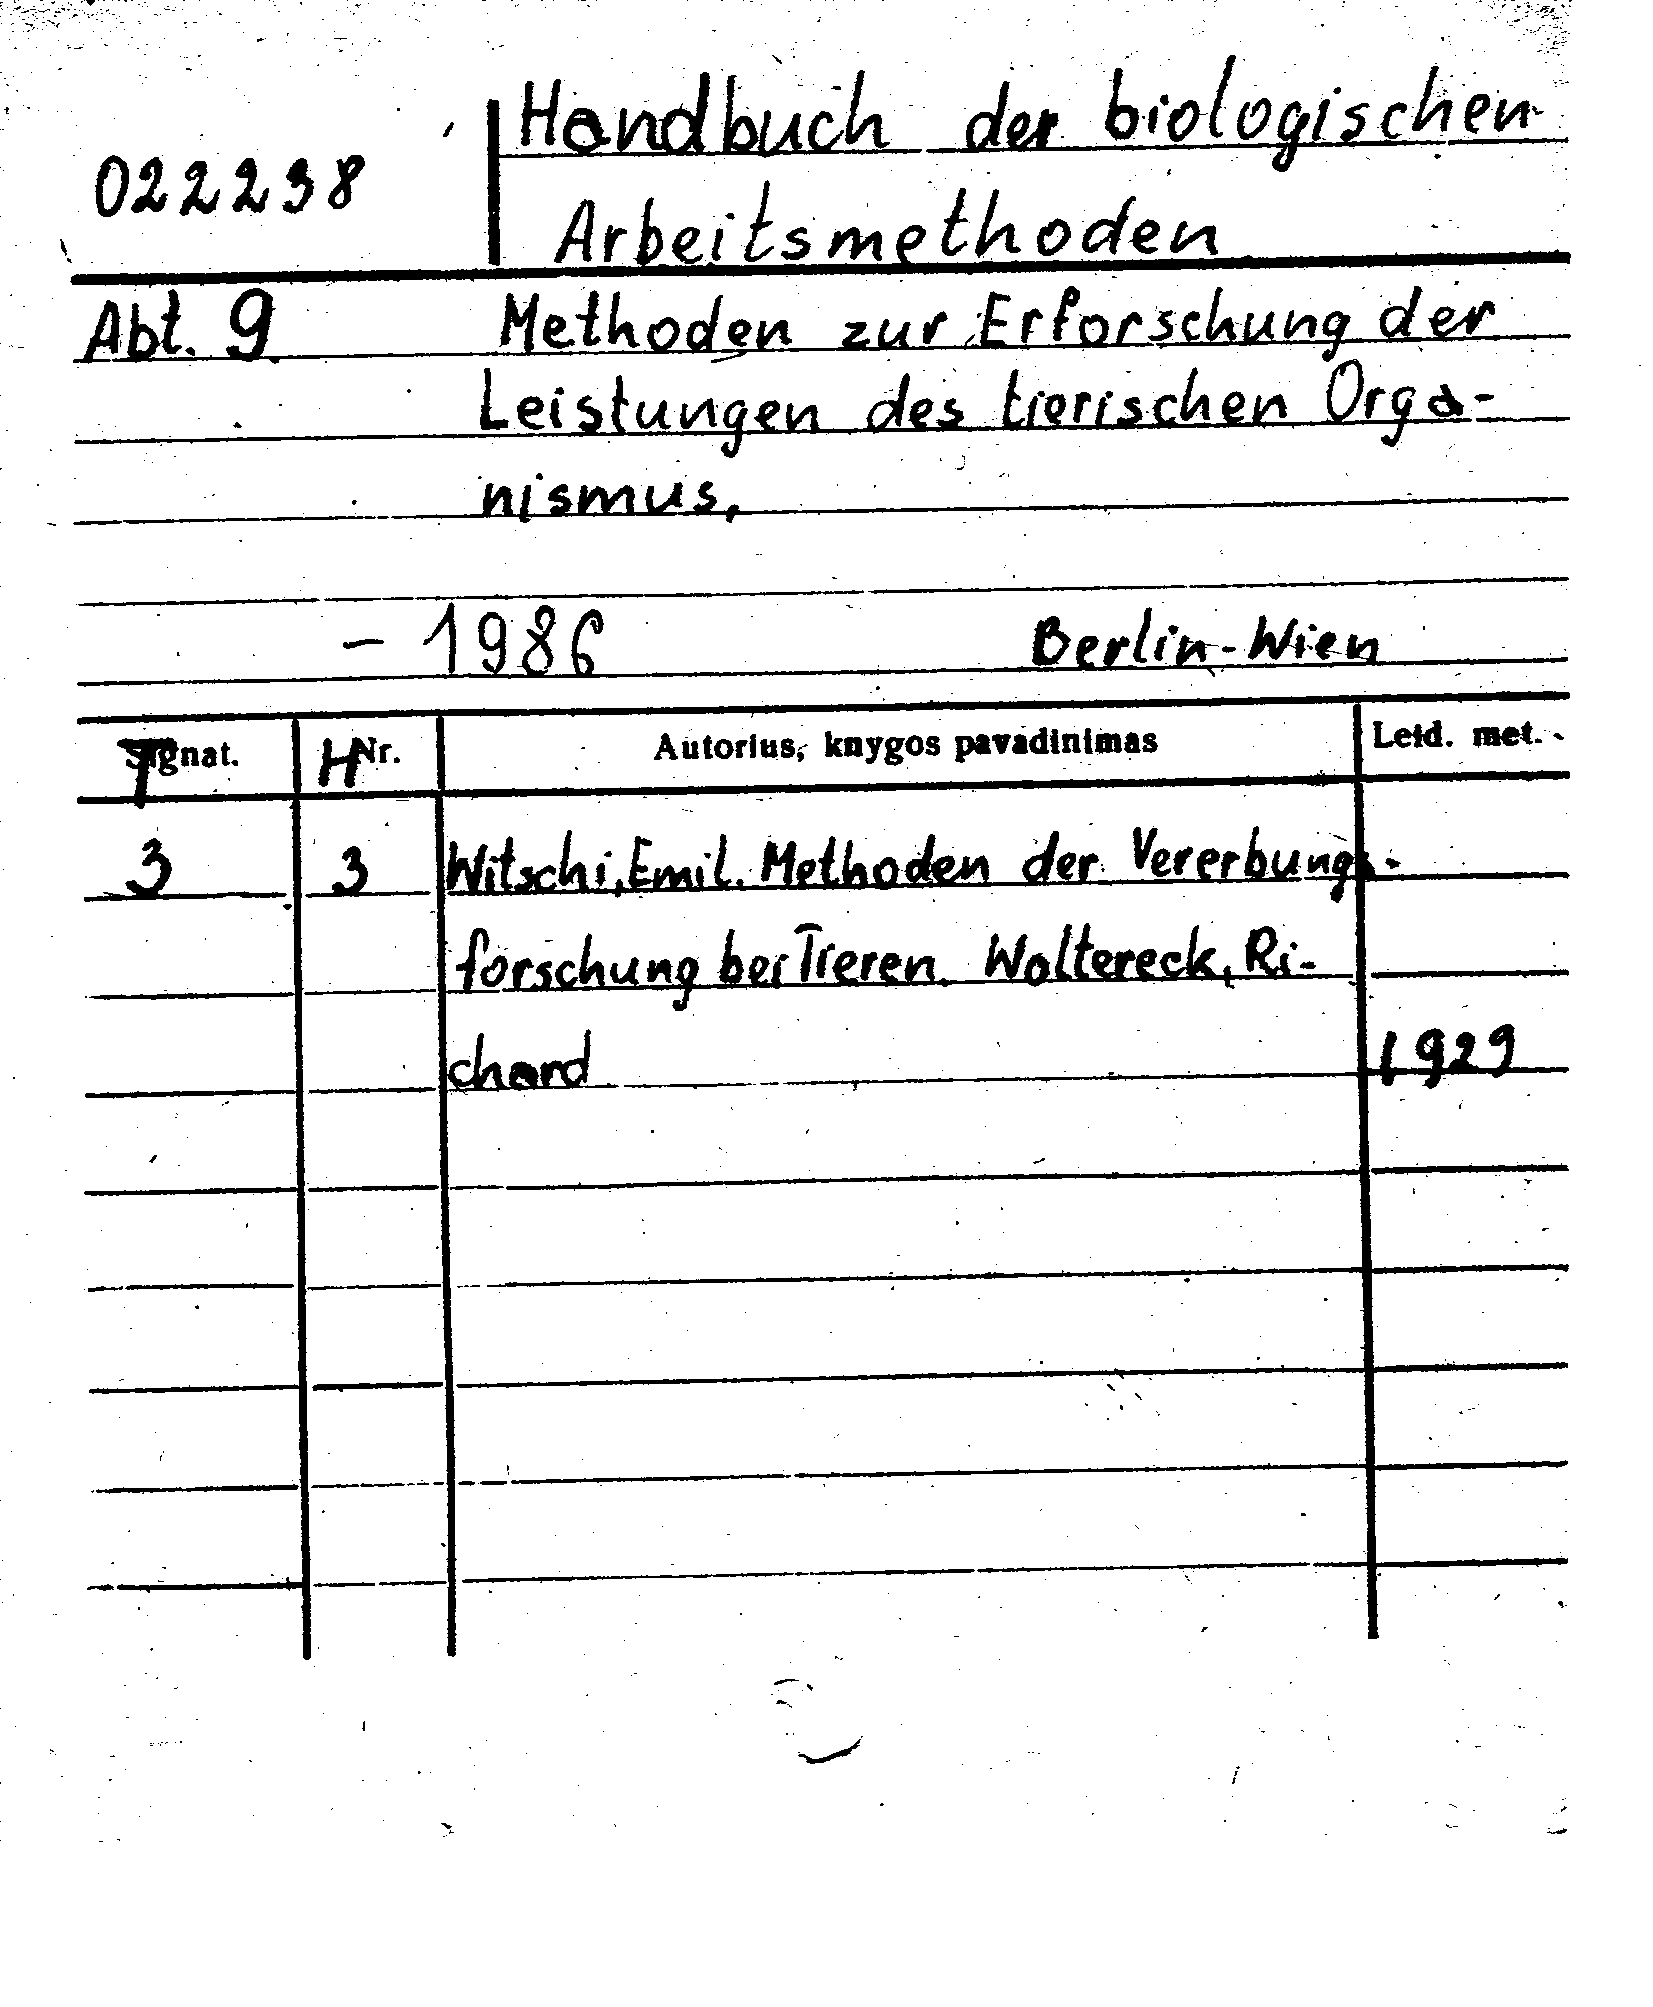 Handbuch der biologischen
022238
Arbeitsmethoden
Abt. 9 Methoden zur Erforschung der
Leistungen des tierischen Orga-
nismus,
- 1986 Berlin-Wien
T H Nr. Autorius, knygos pavadinimas Leid. met.
3 3 Witschi, Emil. Methoden der Vererbungs-
forschung bei Tieren. Woltereck, Ri-
chard 1929